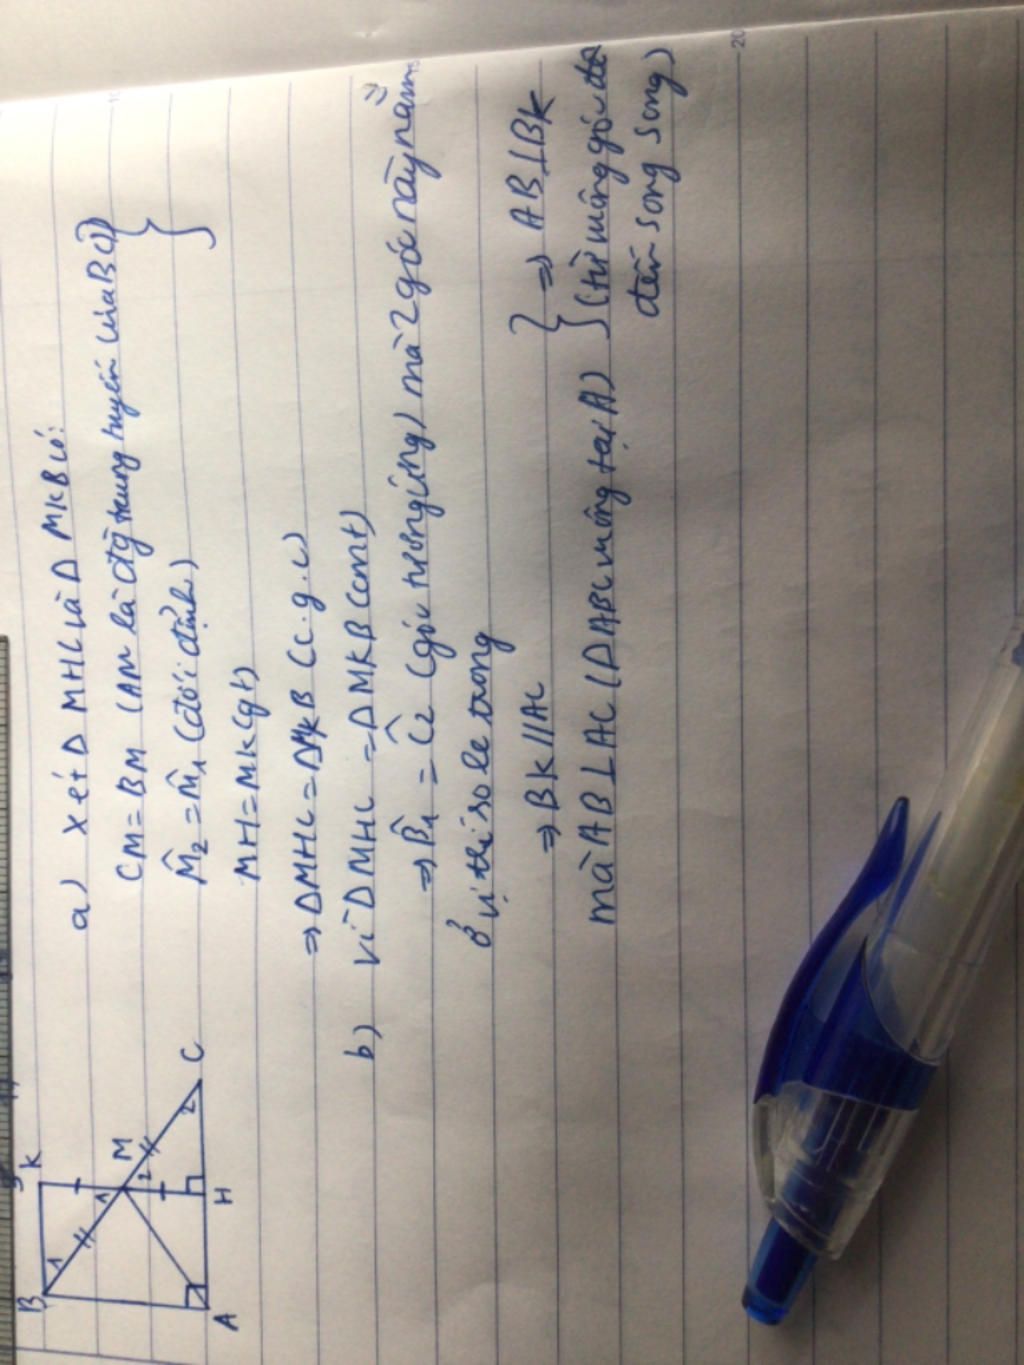 a) Xét Δ MHC và Δ MKB có:
CM = BM (AM là đg trung tuyến của BC)
M̂₂ = M̂₁ (đối đỉnh)
MH = MK (gt)
⇒ ΔMHC = ΔMKB (c.g.c)
b) Vì ΔMHC = ΔMKB (cmt)
⇒ B̂₁ = Ĉ₂ (góc tương ứng) mà 2 góc này nằm
ở vị thí so le trong
⇒ BK // AC
mà AB ⊥ AC (ΔABC vuông tại A)
} ⇒ AB ⊥ BK
(từ vuông góc đến song song)
B
K
1
1
M
2
2
C
A
H
20